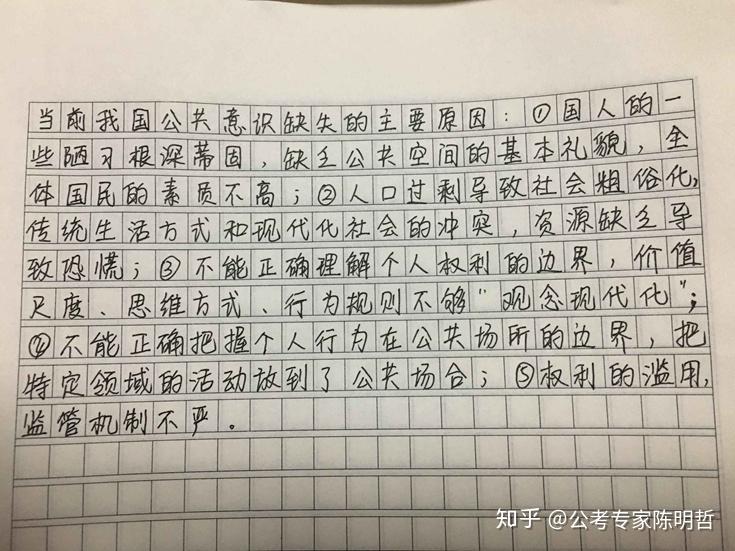 当前我国公共意识缺失的主要原因：①国人的一
些陋习根深蒂固，缺乏公共空间的基本礼貌，全
体国民的素质不高；②人口过剩导致社会粗俗化，
传统生活方式和现代化社会的冲突，资源缺乏导
致恐慌；③不能正确理解个人权利的边界，价值
尺度、思维方式、行为规则不够“观念现代化”；
④不能正确把握个人行为在公共场所的边界，把
特定领域的活动放到了公共场合；⑤权利的滥用，
监管机制不严。
知乎 @公考专家陈明哲